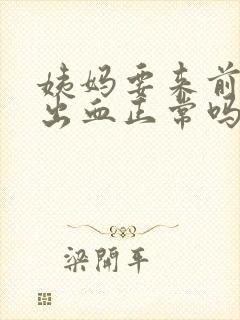 姨妈要来前
出血正常吗
梁開平